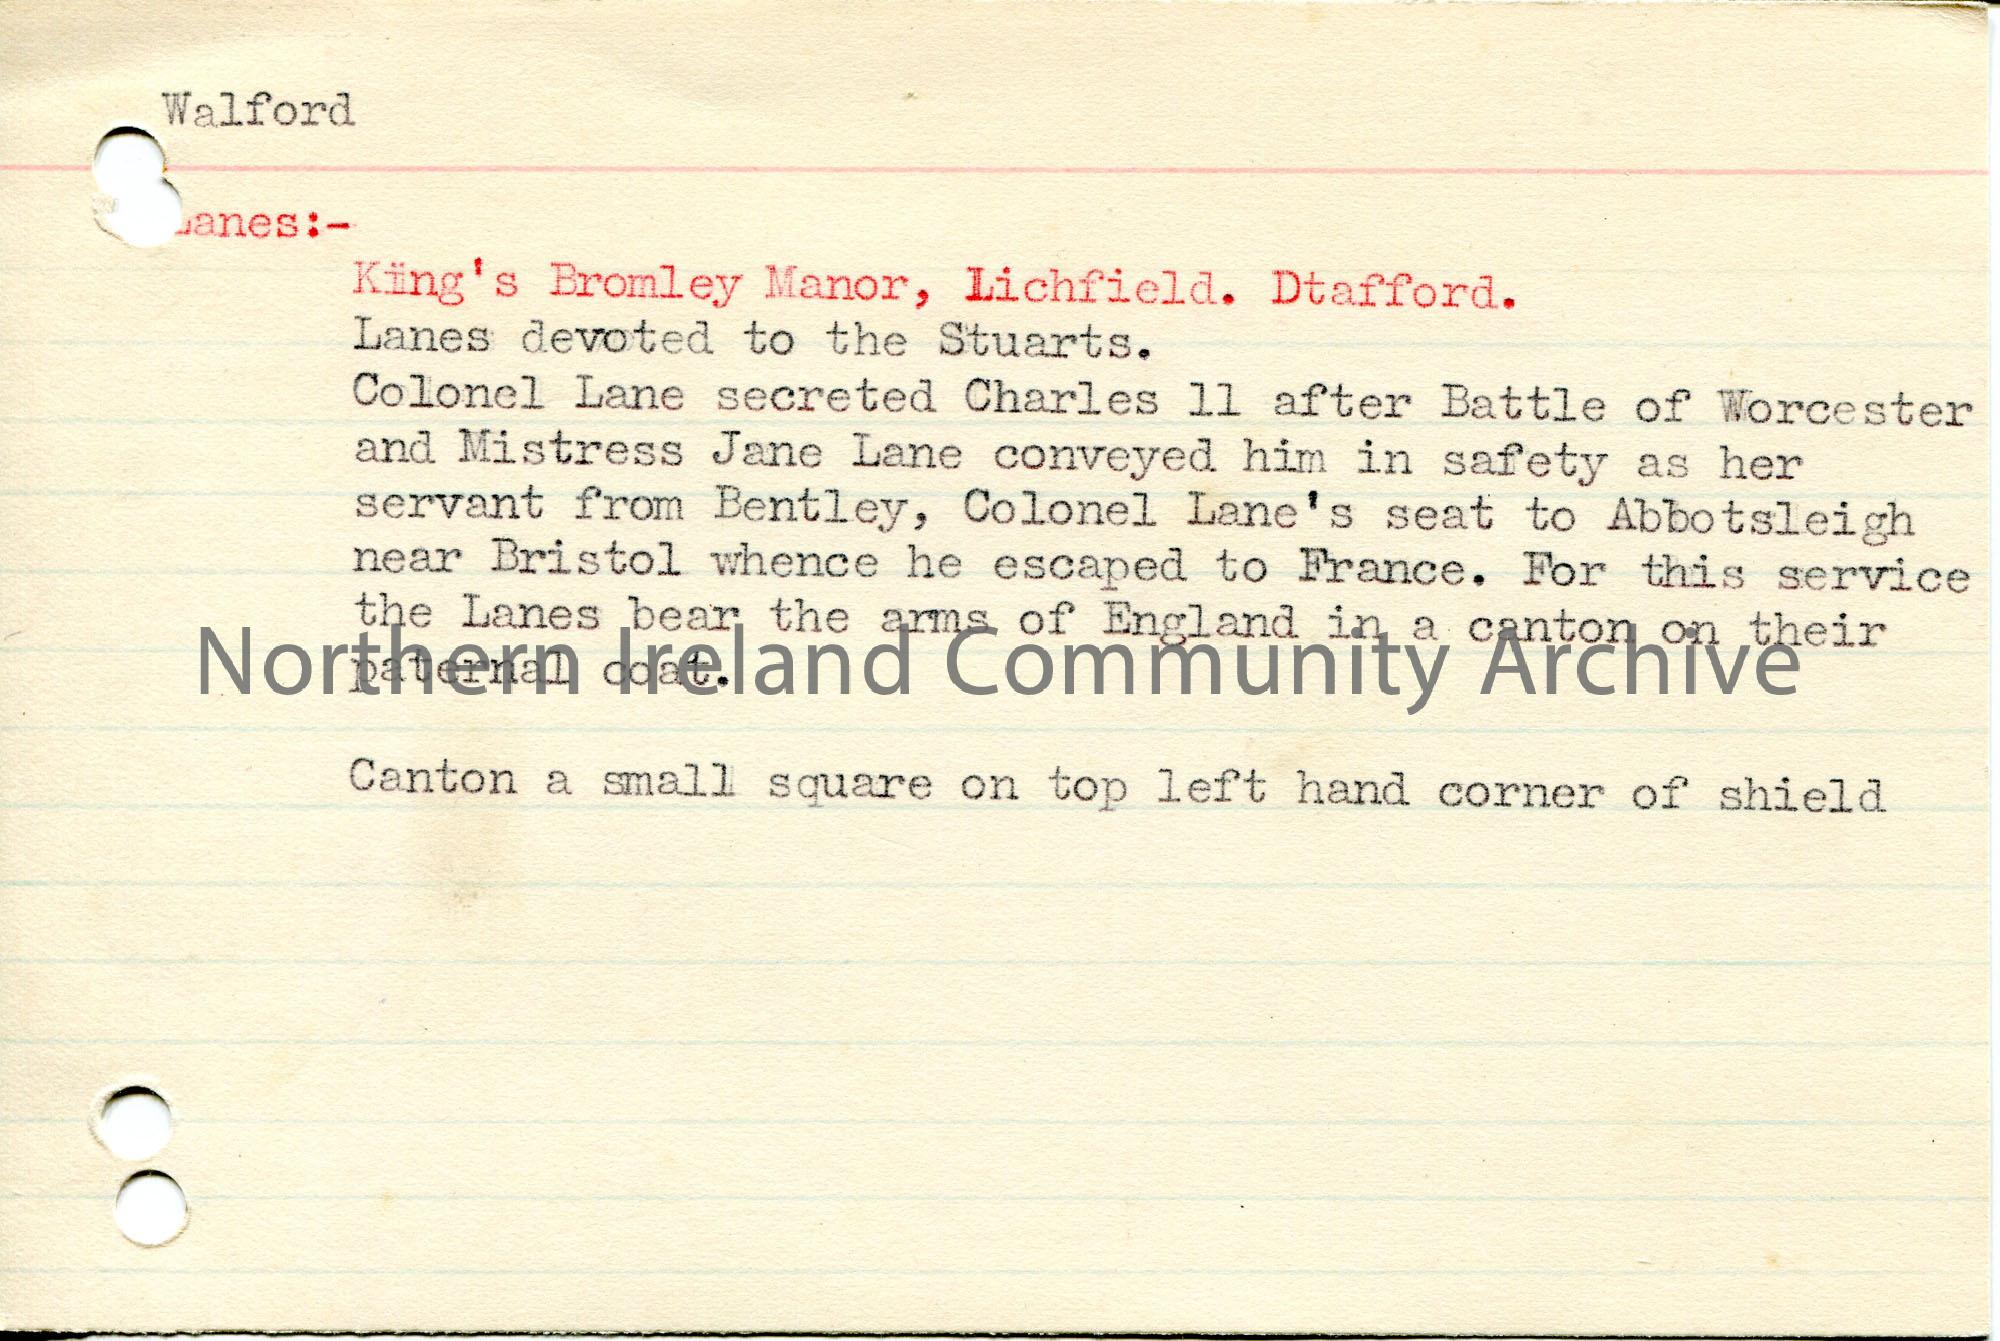 Walford
Lanes:-
King's Bromley Manor, Lichfield. Dtafford.
Lanes devoted to the Stuarts.
Colonel Lane secreted Charles 11 after Battle of Worcester
and Mistress Jane Lane conveyed him in safety as her
servant from Bentley, Colonel Lane's seat to Abbotsleigh
near Bristol whence he escaped to France. For this service
the Lanes bear the arms of England in a canton on their
paternal coat.
Northern Ireland Community Archive
Canton a small square on top left hand corner of shield